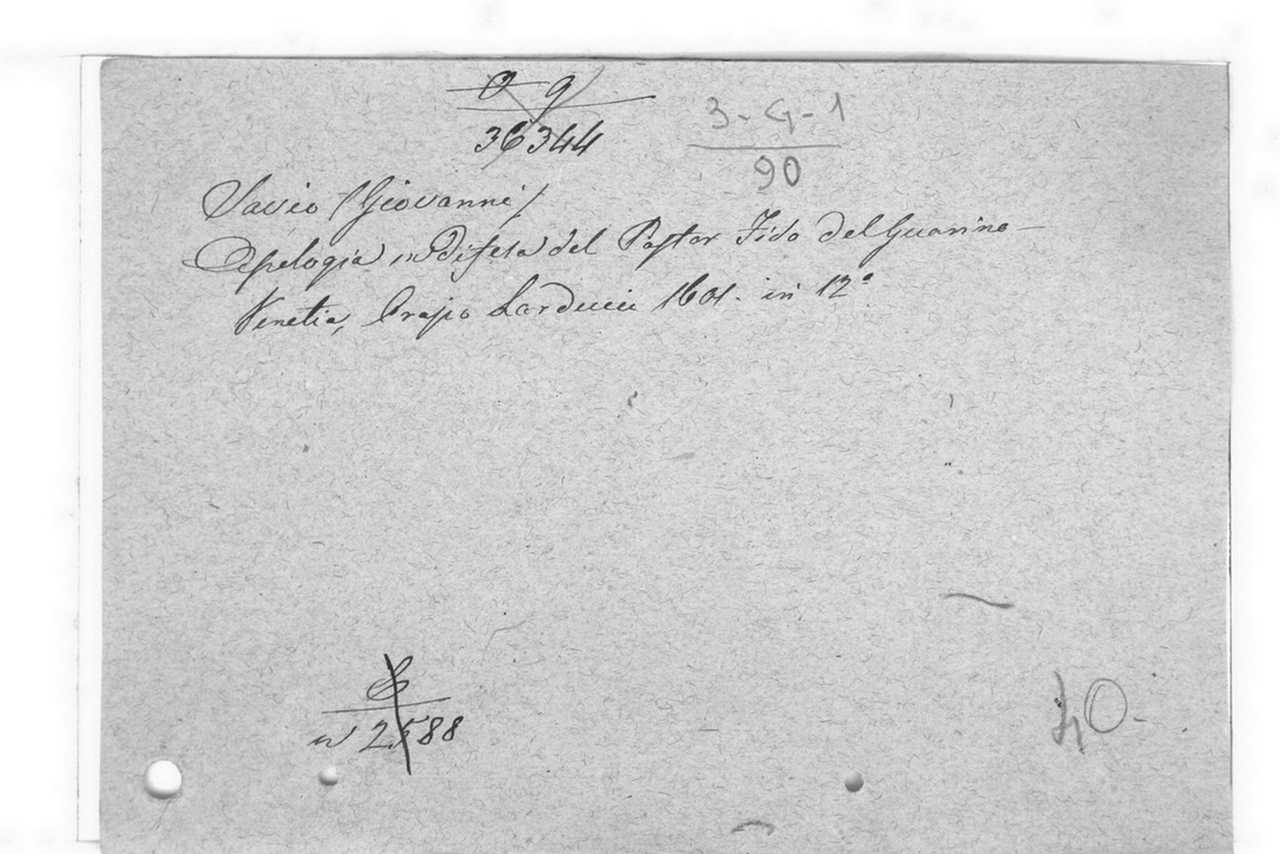 O 9
36344
3-G-1
90
Savio (Giovanni)
Apologia in Difesa del Pastor Fido del Guarino —
Venetia, Orazio Larducci 1601. in 12°
n 2588
40-